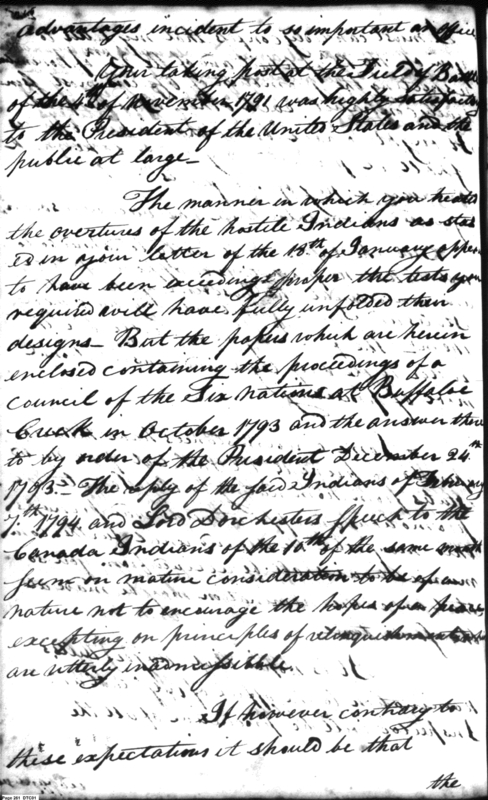 advantages incident to so important an office
Your taking post at the Field of Battle
of the 4th of November 1791 was highly satisfactory
to the President of the United States and the
public at large—
The manner in which you treated
the overtures of the hostile Indians as stat
ed in your letter of the 18th of January appears
to have been exceedingly proper the tests you
required will have fully unfolded their
designs— But the papers which are herein
enclosed containing the proceedings of a
Council of the Six Nations at Buffaloe
Creek in October 1793 and the answer there
to by order of the President December 24th
1793— The reply of the said Indians of February
7th 1794 and Lord Dorchesters speech to the
Canada Indians of the 10th of the same month
seem on mature consideration to be of a
nature not to encourage the hopes of a peace
excepting on principles of relinquishment
are utterly inadmissibble
If however contrary to
these expectations it should be that
the
Page 201 DTC01